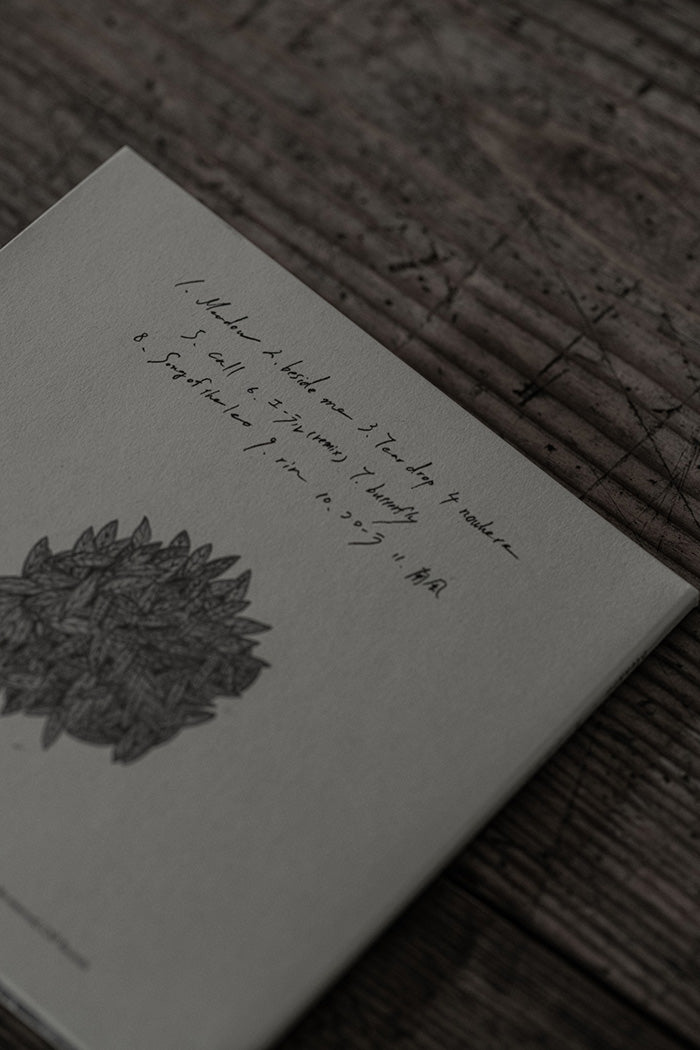 1. Meadow 2. beside me 3. Tear drop 4 nowhere
5. call 6. エーテル(remix) 7. butterfly
8. Song of the leo 9. rim 10. 11. 南風